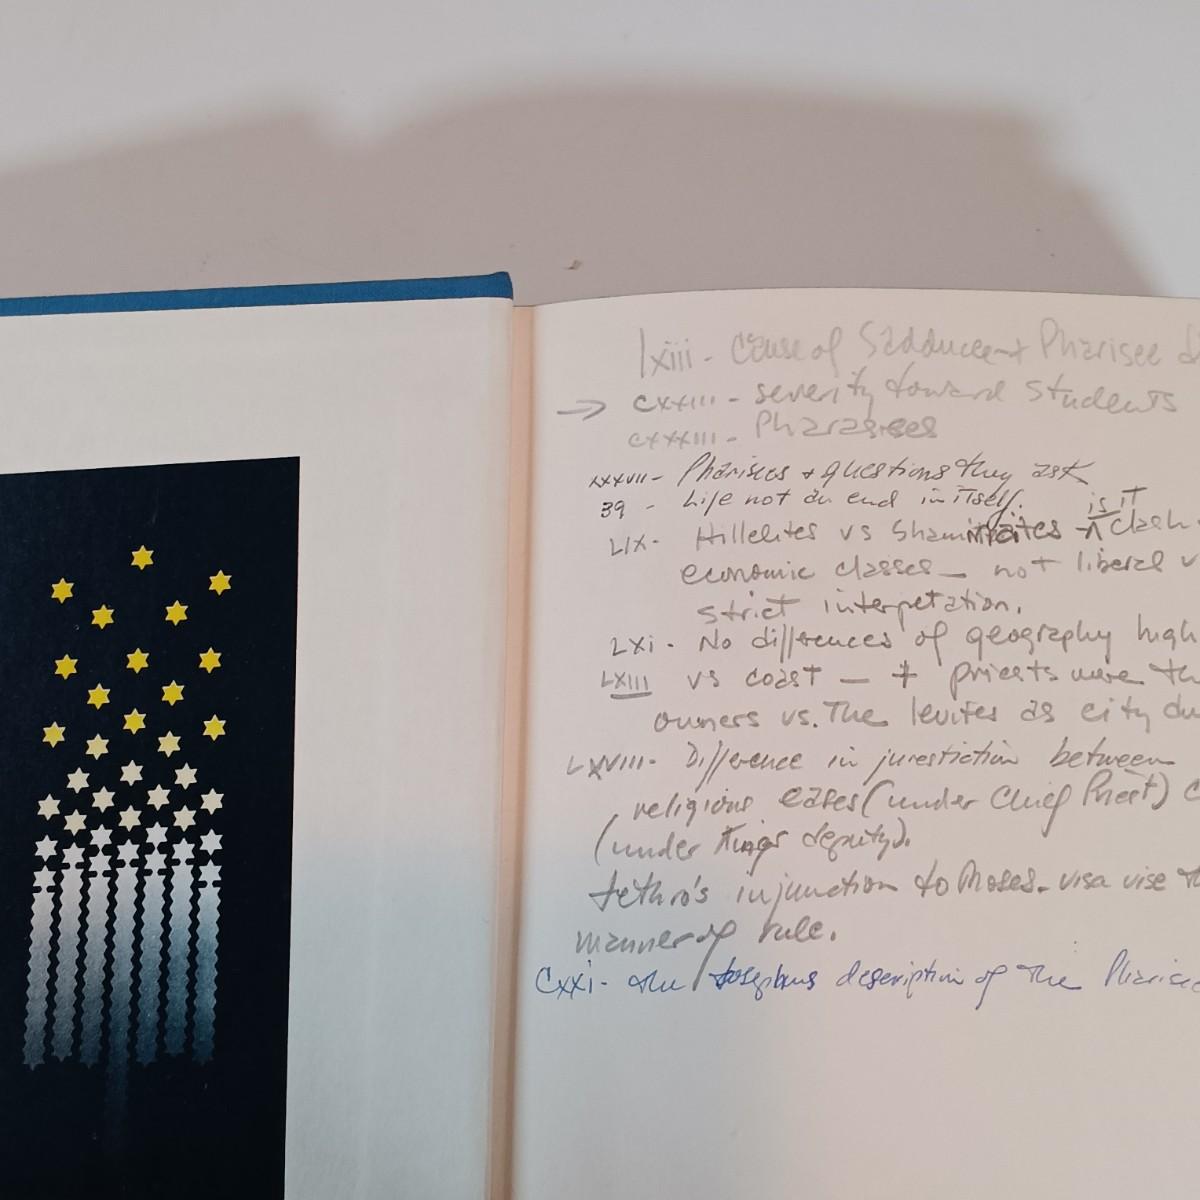 lxiii - Cause of Sadducee + Pharisee
→ cxxiii - severity toward students
cxxxiii - Pharasees
xxxvii - Pharisees + questions they ask
39 - Life not an end in itself.
is it
LIX - Hillelites vs Shammaites clash
economic classes - not liberal v
strict interpetation.
LXi - No differences of geography high
LXIII vs coast - + priests were th
owners vs. The levites as city dw
LXVIII - Difference in jurestiction between
religious cases (under Chief Priest) c
(under Kings deputy).
Jethro's injunction to Moses - visa vise th
manner of rule.
Cxxi - the Josephus description of the Pharisee